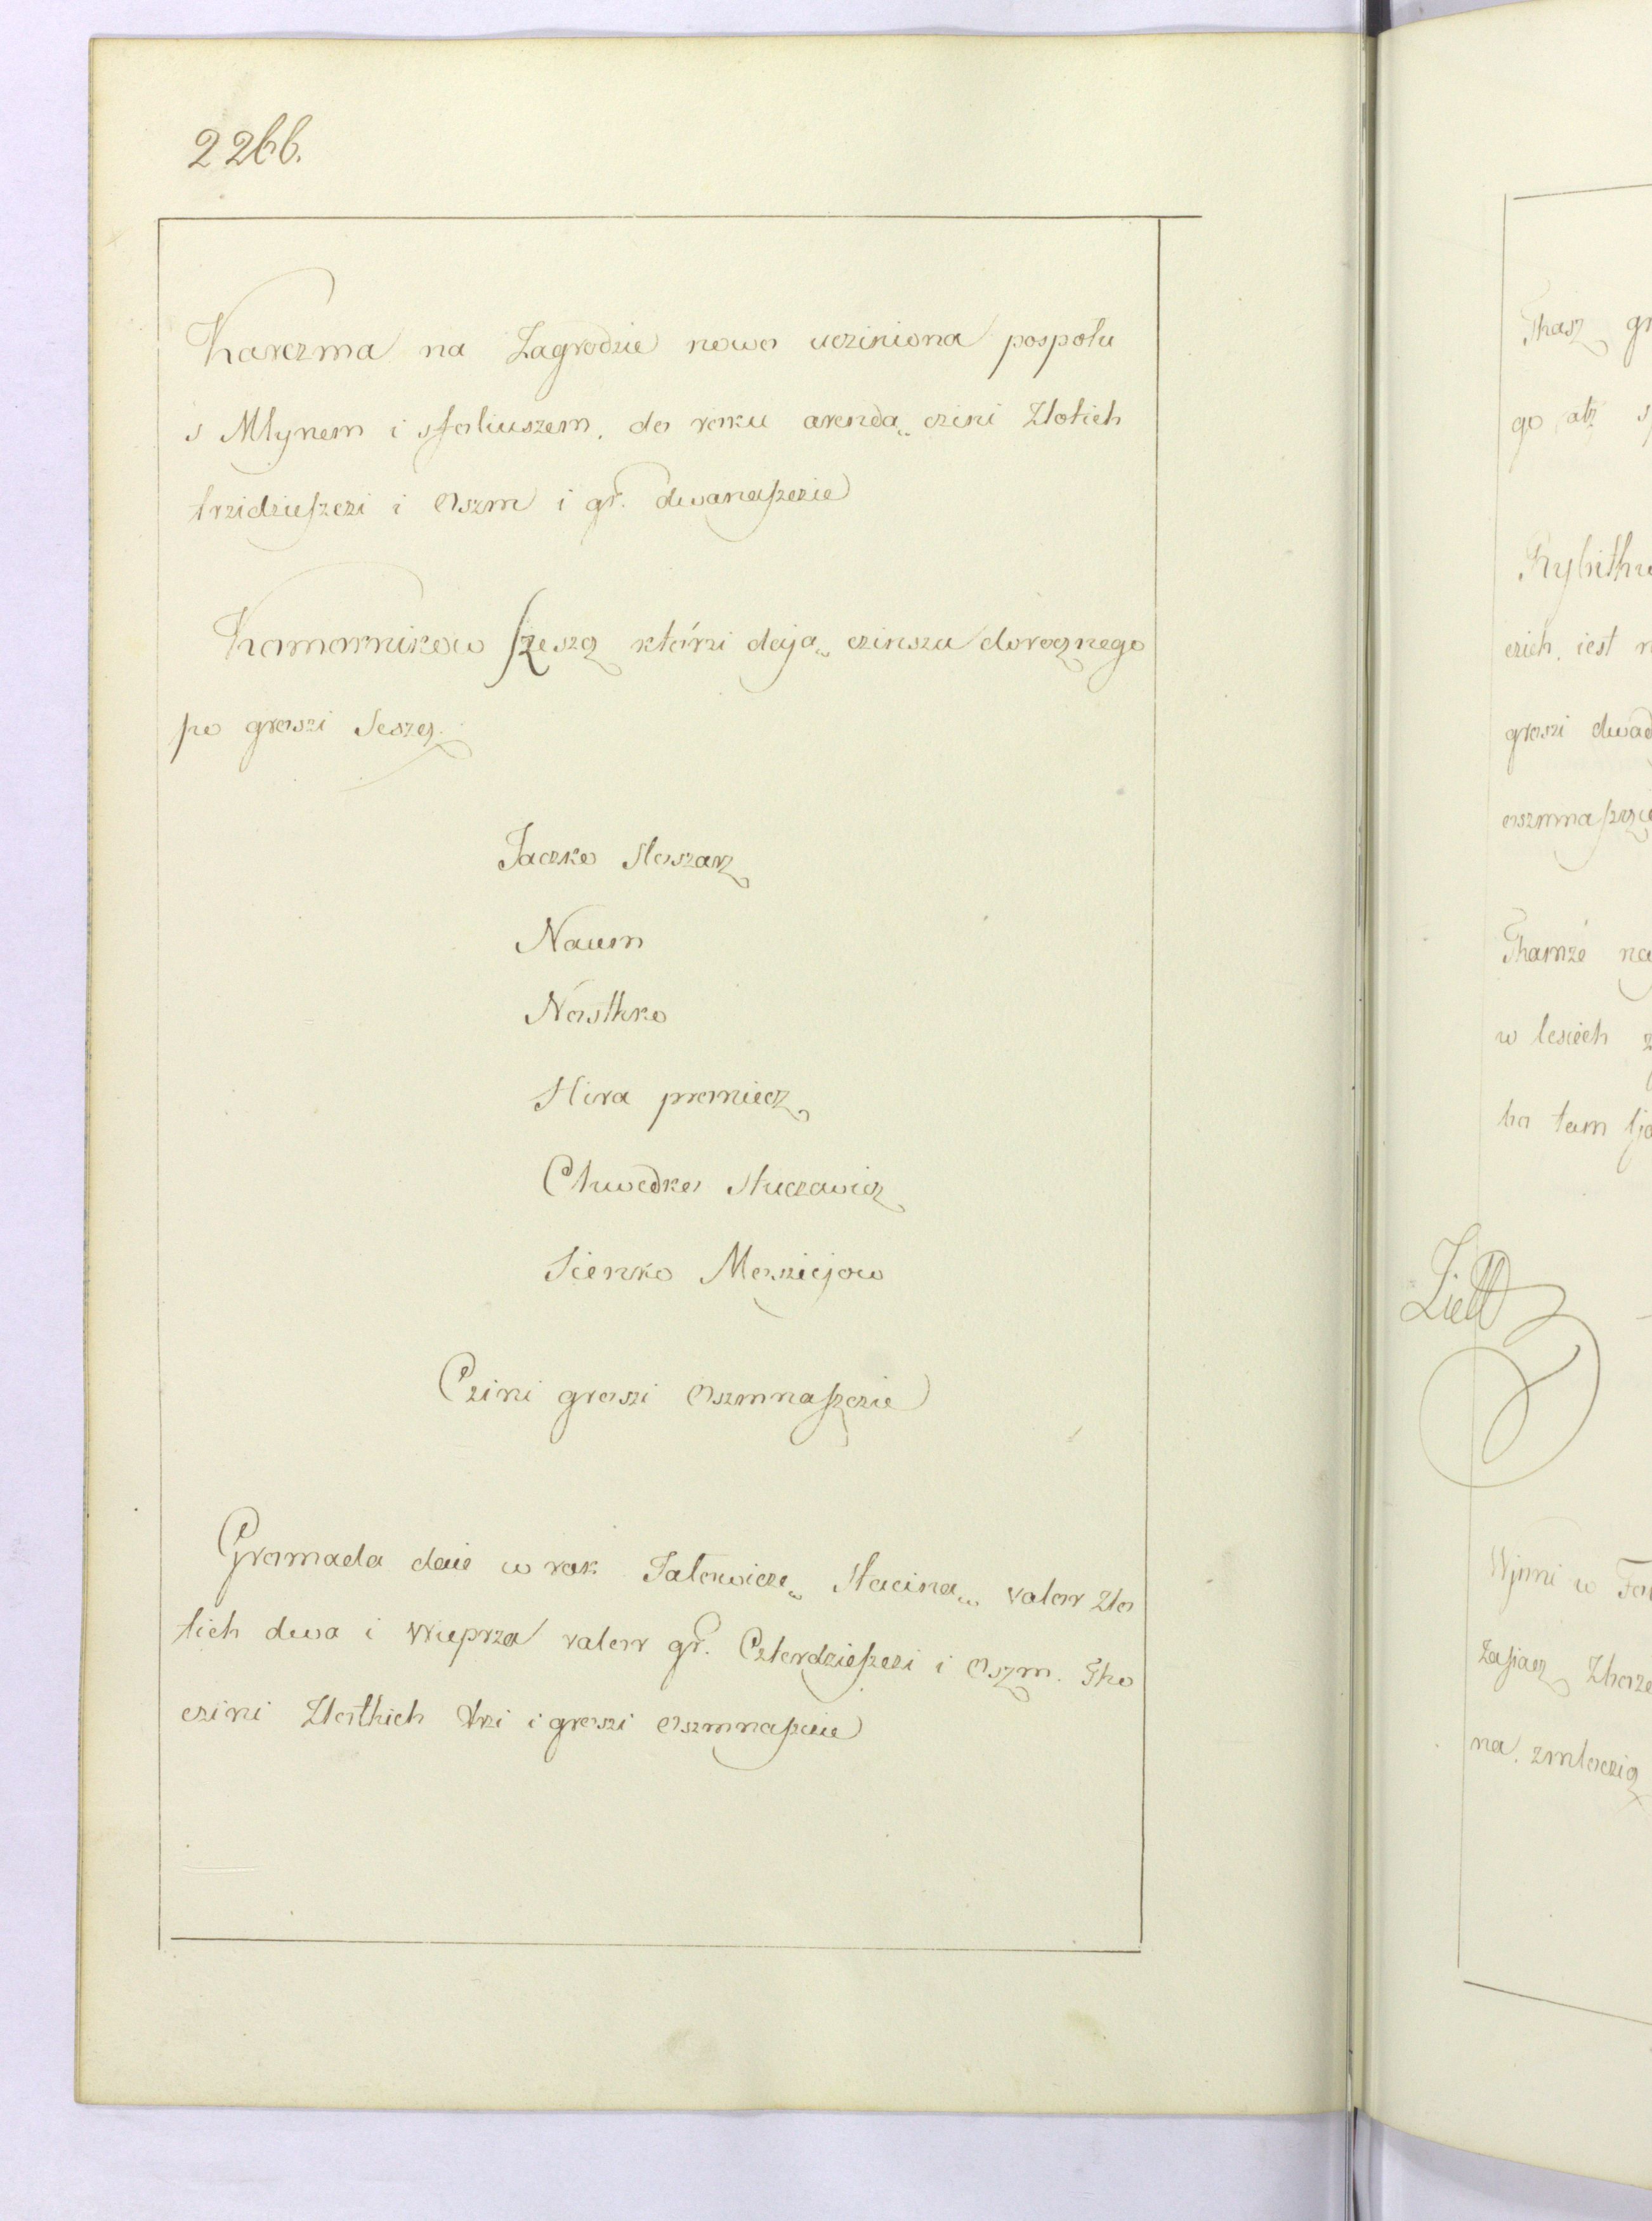 2266.
Karczma na Zagrodzie nowo ucziniona pospołu
s Młynem i sfoliuszem, do roku arendą czini Złotich
trzidzieszczi i Oszm i gr. dwanaszczie
Komornikow szescz którzi dają czinszu dorocznego
po groszi Sescz.
Jaczko Sloszarz
Naum
Nasthko
Hira promiecz
Chwedko
Sienko
Czini groszi Oszmnaszczie
Gromada daie w rok Jalowiczę Staciną valor Zło
tich dwa i Wieprza valor gr. Czterdzieszczi i Oszm. Tho
czini Złothich trzi i groszi Oszmnaszcie
Thasz
go
Rybithw
czich, iest
groszi dwad
oszmnaszcie
Thamże na
w lesiech
ho tam
Wjmi w
Zasiacz
na, zmloczicz